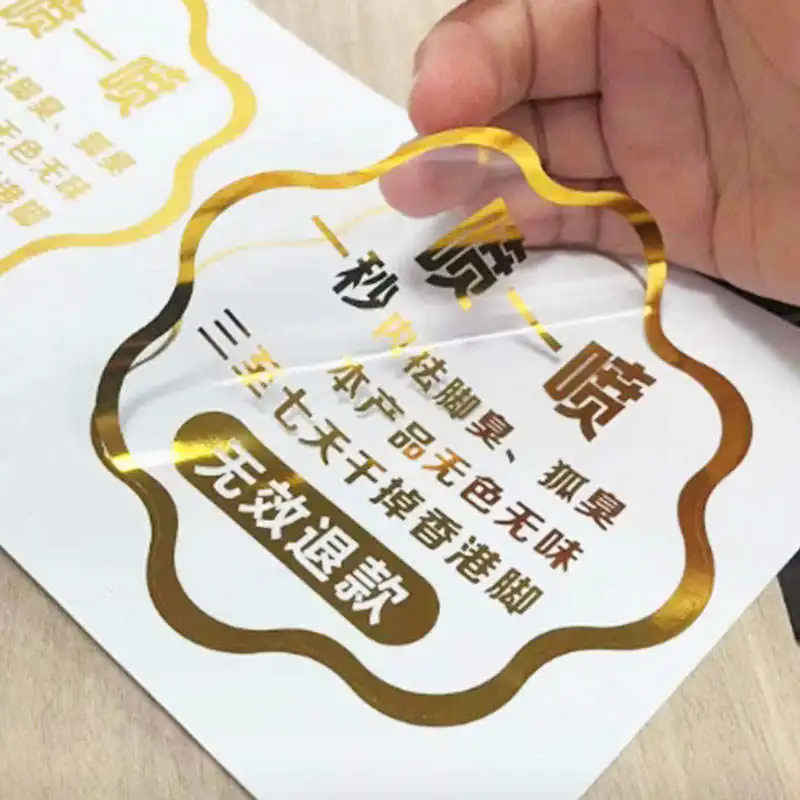 喷一喷
祛脚臭、狐臭
无色无味
港脚
喷一喷
一秒内祛脚臭、狐臭
本产品无色无味
三至七天干掉香港脚
无效退款